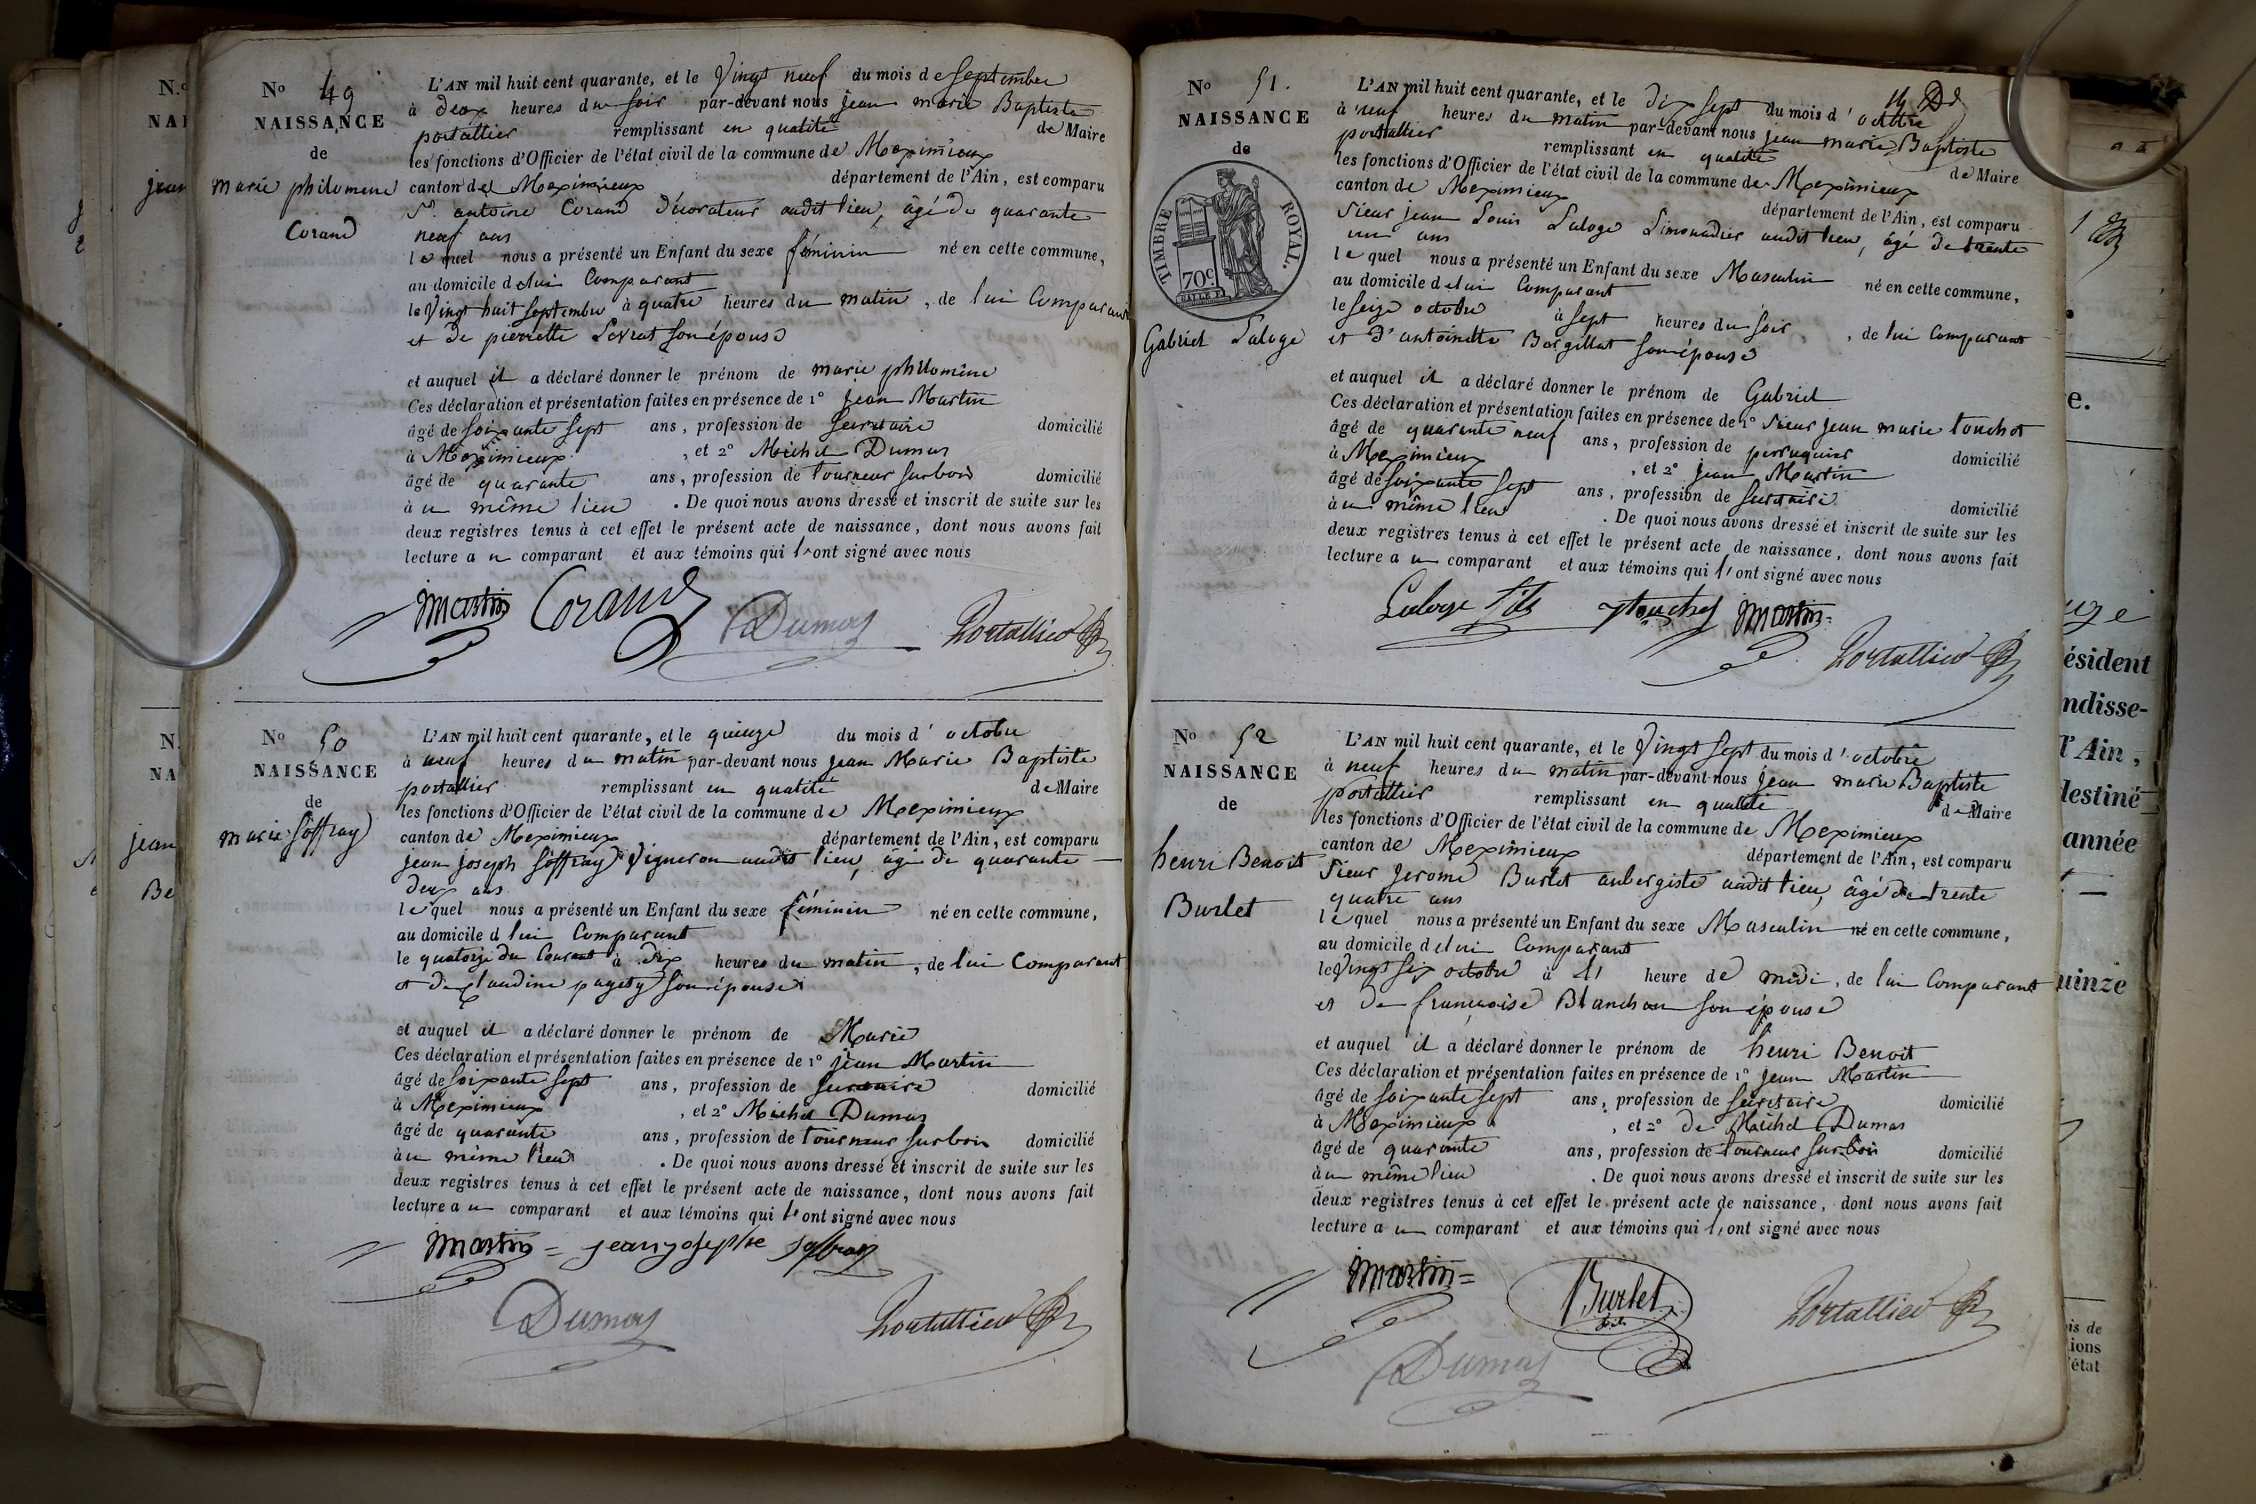 No 49
NAISSANCE
de
marie philomene
Corand
L'AN mil huit cent quarante, et le Vingt neuf du mois de septembre
à deux heures du soir par-devant nous jean marie Baptiste
portallier remplissant en qualité de Maire
les fonctions d'Officier de l'état civil de la commune de Meximieux
canton de Meximieux département de l'Ain, est comparu
Sr. antoine Corand décorateur audit lieu, âgé de quarante
neuf ans
lequel nous a présenté un Enfant du sexe féminin né en cette commune,
au domicile de lui Comparant
le Vingt huit septembre à quatre heures du matin, de lui Comparant
et de pierrette Levrat son épouse
et auquel il a déclaré donner le prénom de marie philomène
Ces déclaration et présentation faites en présence de 1° jean Martin
âgé de soixante sept ans, profession de secretaire domicilié
à Meximieux, et 2° Michel Dumas
âgé de quarante ans, profession de tourneur sur bois domicilié
à u même lieu. De quoi nous avons dressé et inscrit de suite sur les
deux registres tenus à cet effet le présent acte de naissance, dont nous avons fait
lecture a u comparant et aux témoins qui l'ont signé avec nous
Martin Corand Dumas Portallier
No 50
NAISSANCE
de
marie Soffray
L'AN mil huit cent quarante, et le quinze du mois d'octobre
à neuf heures du matin par-devant nous jean Marie Baptiste
portallier remplissant en qualité de Maire
les fonctions d'Officier de l'état civil de la commune de Meximieux
canton de Meximieux département de l'Ain, est comparu
jean joseph Soffray Vigneron audit lieu, âgé de quarante
deux ans
lequel nous a présenté un Enfant du sexe féminin né en cette commune,
au domicile d lui Comparant
le quatorze du Courant à dix heures du matin, de lui Comparant
et de Claudine pagety son épouse
et auquel il a déclaré donner le prénom de Marie
Ces déclaration et présentation faites en présence de 1° jean Martin
âgé de soixante sept ans, profession de secretaire domicilié
à Meximieux, et 2° Michel Dumas
âgé de quarante ans, profession de tourneur sur bois domicilié
à u même lieu. De quoi nous avons dressé et inscrit de suite sur les
deux registres tenus à cet effet le présent acte de naissance, dont nous avons fait
lecture a u comparant et aux témoins qui l'ont signé avec nous
Martin jean josephe Soffray
Dumas Portallier
No 51.
NAISSANCE
de
TIMBRE ROYAL.
70c.
Gabriel Laloge
L'AN mil huit cent quarante, et le dix sept du mois d'octobre
à neuf heures du matin par-devant nous jean marie Baptiste
portallier remplissant en qualité de Maire
les fonctions d'Officier de l'état civil de la commune de Meximieux
canton de Meximieux département de l'Ain, est comparu
Sieur jean Louis Laloge Limonadier audit lieu, âgé de trente
un ans
lequel nous a présenté un Enfant du sexe Masculin né en cette commune,
au domicile de lui Comparant
le seize octobre à sept heures du soir, de lui Comparant
et d'antoinette Bargillat son épouse
et auquel il a déclaré donner le prénom de Gabriel
Ces déclaration et présentation faites en présence de 1° Sieur jean marie touchot
âgé de quarante neuf ans, profession de perruquier domicilié
à Meximieux, et 2° jean Martin
âgé de soixante sept ans, profession de secretaire domicilié
à u même lieu. De quoi nous avons dressé et inscrit de suite sur les
deux registres tenus à cet effet le présent acte de naissance, dont nous avons fait
lecture a u comparant et aux témoins qui l'ont signé avec nous
Laloge fils touchot Martin
Portallier
No 52
NAISSANCE
de
henri Benoit
Burlet
L'AN mil huit cent quarante, et le Vingt sept du mois d'octobre
à neuf heures du matin par-devant nous jean marie Baptiste
portallier remplissant en qualité de Maire
les fonctions d'Officier de l'état civil de la commune de Meximieux
canton de Meximieux département de l'Ain, est comparu
Sieur jerome Burlet aubergiste audit lieu, âgé de trente
quatre ans
lequel nous a présenté un Enfant du sexe Masculin né en cette commune,
au domicile de lui Comparant
le Vingt six octobre à l' heure de midi, de lui Comparant
et de françoise Blanchon son épouse
et auquel il a déclaré donner le prénom de henri Benoit
Ces déclaration et présentation faites en présence de 1° jean Martin
âgé de soixante sept ans, profession de secretaire domicilié
à Meximieux, et 2° de Michel Dumas
âgé de quarante ans, profession de tourneur sur bois domicilié
à u même lieu. De quoi nous avons dressé et inscrit de suite sur les
deux registres tenus à cet effet le présent acte de naissance, dont nous avons fait
lecture a u comparant et aux témoins qui l'ont signé avec nous
Martin Burlet Portallier
Dumas